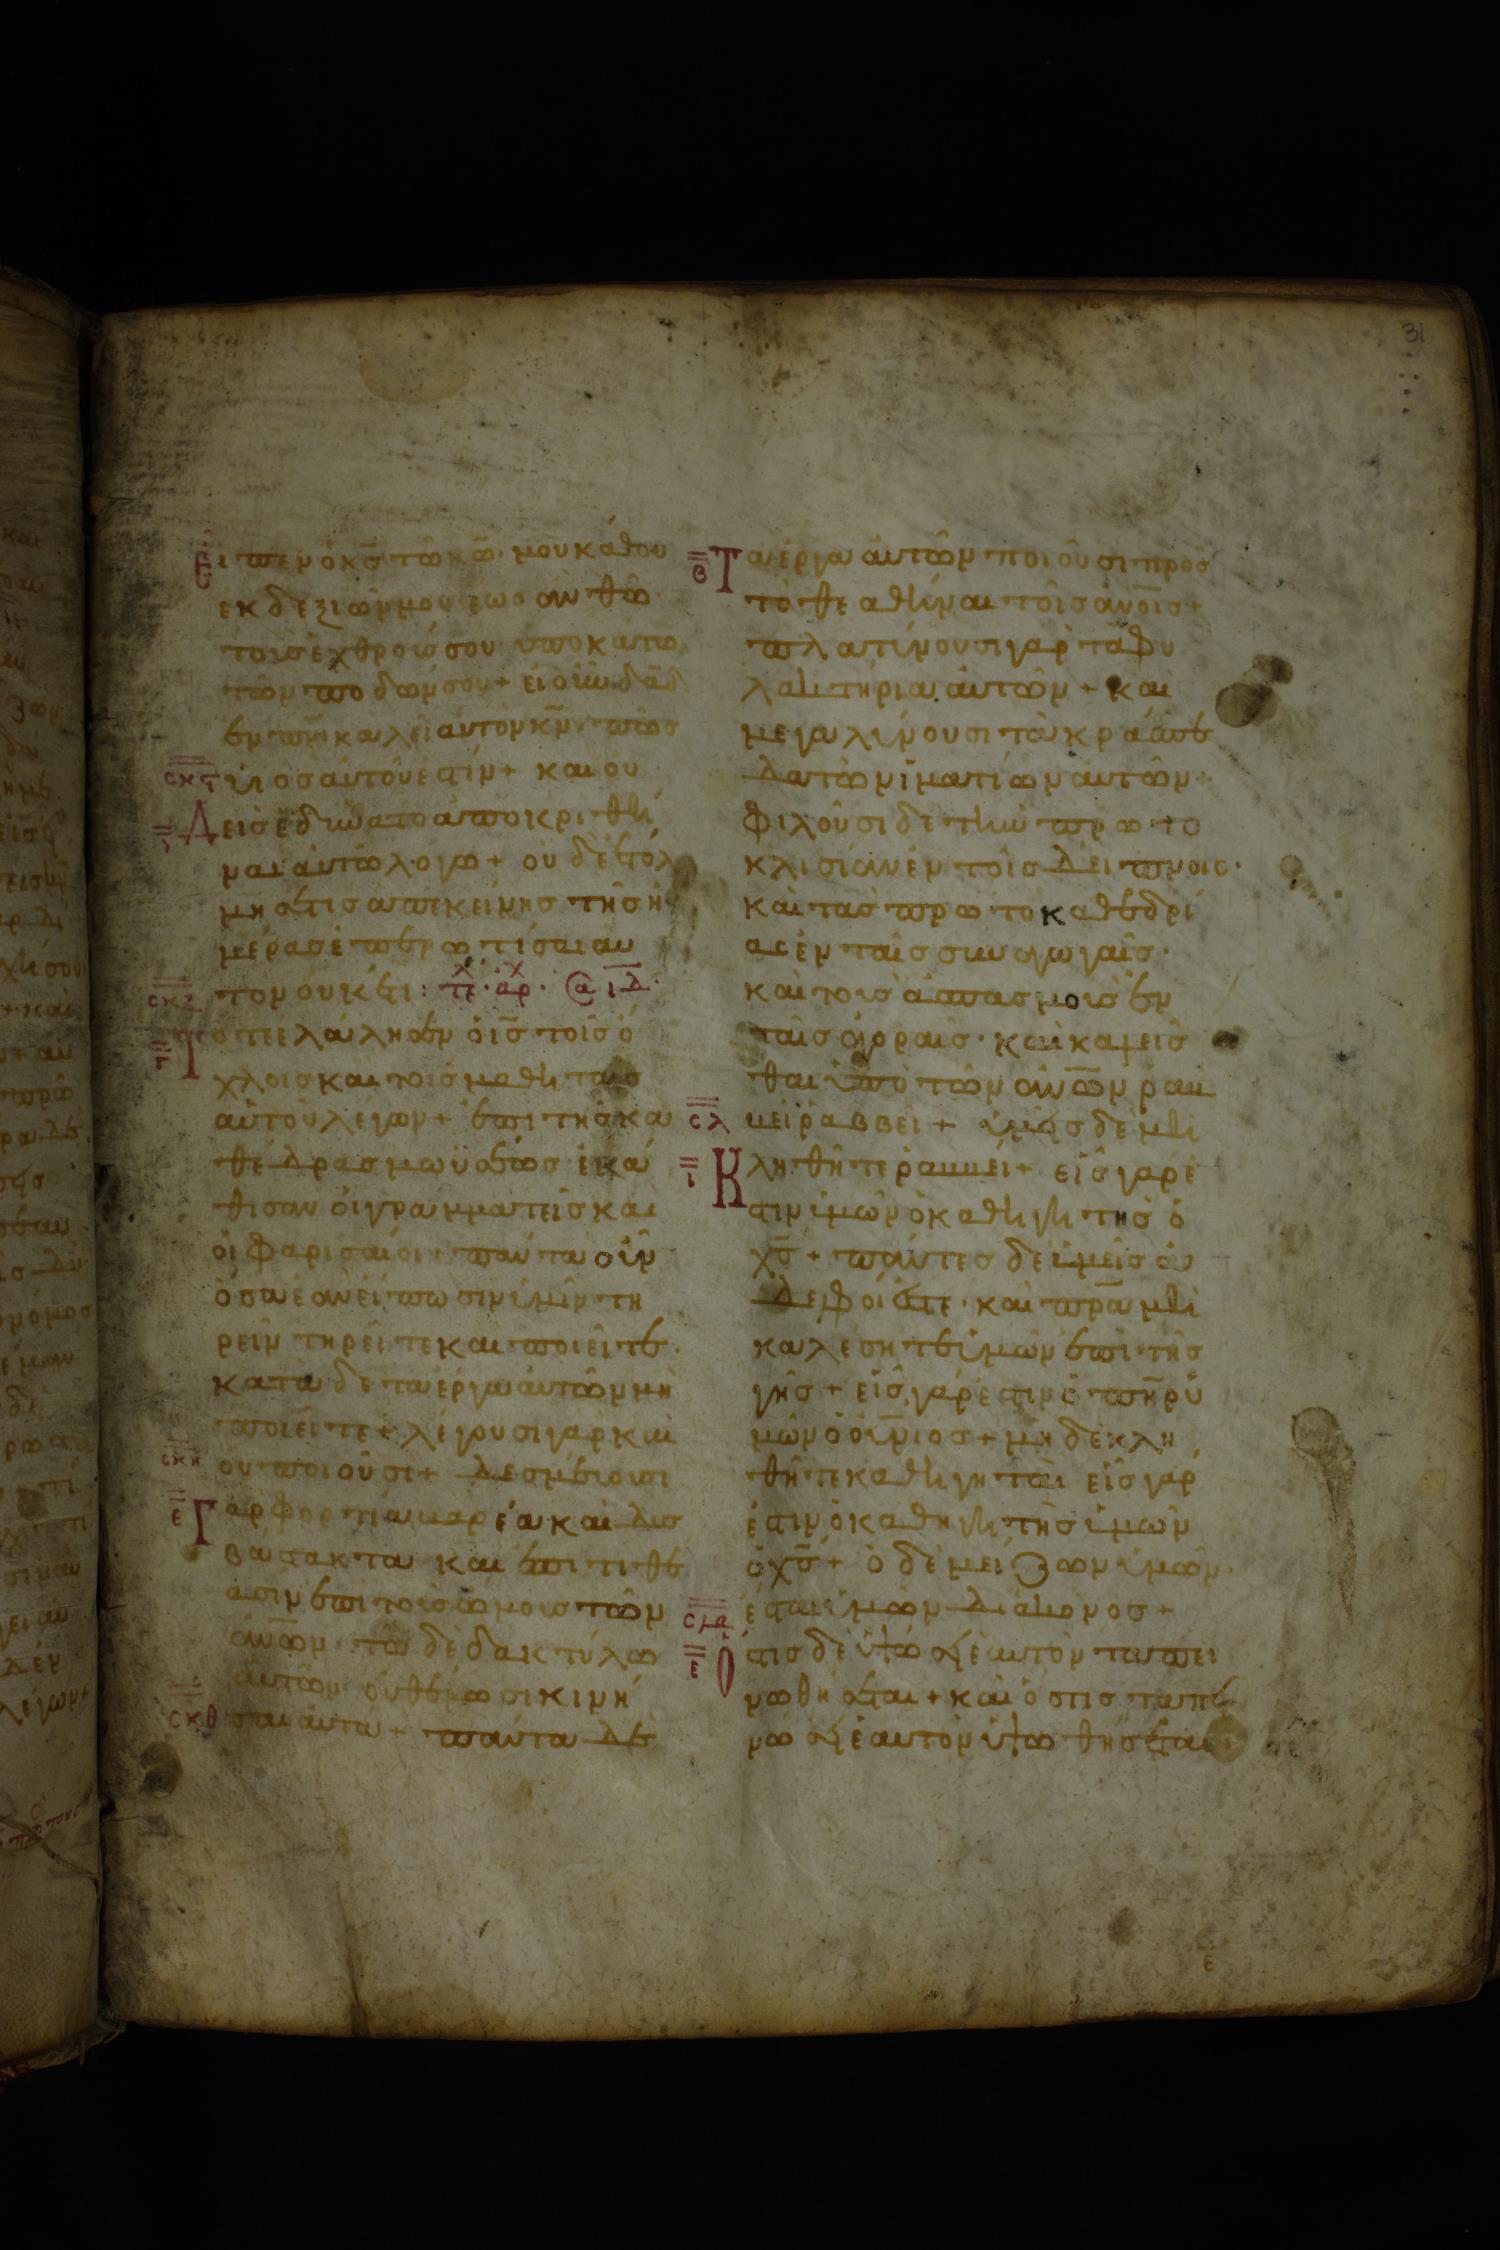 31
Εἶπεν ὁ κ̅ς̅ τῶ κ̅ω̅ μου κάθου
εκ δεξιῶν μου έως ἀν θῶ
τοὺσ ἐχθροὺσ σου ὑποκάτω
τῶν ποδῶν σου + εἰ οὖν δα̅δ̅
ἐν π̅ν̅ι̅ καλεῖ αυτὸν κ̅ν̅ · πῶσ
σκϛ ϋἱοσ αυτοῦ εστίν + και ου
Δεὶσ ἐδύνατο ἀποκριθῆ
ναι αυτῶ λόγω + οὐδὲ ἐτόλ
μησέ τισ ἀπεκείνησ τῆσ ἡ
μέρασ ἐπερωτίσαι αυ
σκζ τὸν οὐκέτι : τε · αρχ · @ ιδ
Τότε ελάλησεν ὁ ι̅ς̅ τοῖσ ὄ
χλοισ και τοισ μαθηταῖσ
αὐτοῦ λέγων + ἐπι τῆσ κα
θέδρασ μωϋσέωσ ἐκά
θισαν οἱ γραμματεῖσ και
οἱ φαρισαῖοι + πάντα οὖν
ὅσα ἐὰν εἴπωσιν ὑμῖν τη
ρεῖν τηρεῖτε και ποιεῖτε ·
κατὰ δὲ τα έργα ἀυτῶν μὴ
ποιεῖτε + λέγουσι γὰρ και
σκη ου ποιοῦσι + δεσμεύουσι
ε Γὰρ φορτία βαρέα και δυσ
βάστακτα και ἐπιτιθέ
ασιν ἐπι τοὺσ ὤμουσ τῶν
α̅ν̅ω̅ν̅ · τῶ δὲ δακτύλω
ἁυτῶν οὐ θέλωσι κινῆ
σκθ σαι αυτά + πάντα δὲ
β Τὰ έργα ἀυτῶν ποιοῦσι πρὸσ
τὸ θεαθῆναι τοῖσ α̅ν̅ο̅ι̅ς̅ +
πλατύνουσι γὰρ τὰ φυ
λακτήρια ἀυτῶν + και
μεγαλύνουσι τὰ κράσπε
δα τῶν ἱματίων ἀυτῶν ·
φιλοῦσι δὲ τὴν πρωτο
κλισίαν ἐν τοῖσ δείπνοις ·
και τὰσ πρωτοκαθεδρί
ασ ἐν ταῖσ συναγωγαῖσ ·
και τοὺσ ἀσπασμοὺσ ἐν
ταῖσ ἀγοραῖσ · και καλεῖσ
θαι ὑπὸ τῶν α̅ν̅ω̅ν̅ ραβ
σλ βεὶ ραββεὶ + ὑμεῖσ δὲ μὴ
ι Κληθῆτε ραββεί + εἷσ γάρ ἐ
στιν ὑμῶν ὁ καθηγητὴσ ὁ
χ̅ς̅ + πάντεσ δὲ ὑμεῖσ ἀ
δελφοί ἐστε · και π̅ρ̅α̅ μὴ
καλέσητε ὑμῶν ἐπὶ τῆσ
γῆσ + εἷσ γάρ ἐστιν ὁ π̅η̅ρ̅ ὑ
μῶν ὁ οὐ̅ν̅ιοσ + μηδὲ κλη
θῆτε καθηγηταὶ εἷσ γάρ
ἐστιν ὁ καθηγητὴσ ὑμῶν
ὁ χ̅ς̅ + ὁ δὲ μείζων ὑμῶν ·
σλα έσται ὑμῶν διάκονοσ +
ε Ὅστισ δὲ ὑψώσει ἑαυτὸν ταπει
νωθήσεται + και ὅστισ ταπει
νώσει ἑαυτὸν ὑψωθήσεται
ε